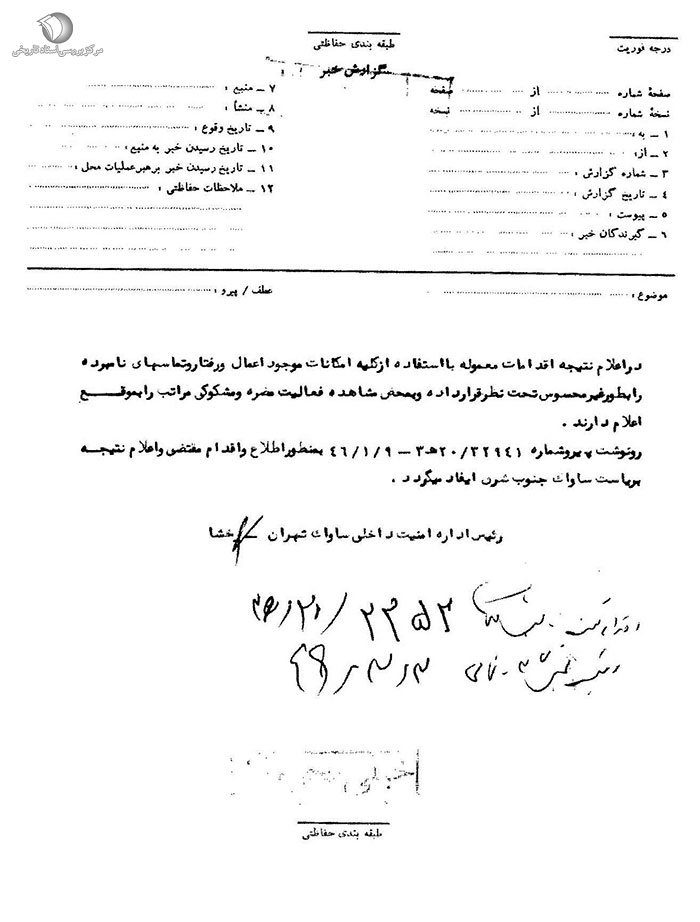 مرکز بررسی اسناد تاریخی
طبقه بندی حفاظتی
درجه فوریت
گزارش خبر
صفحهٔ شماره از صفحه
نسخهٔ شماره از نسخه
۱ ــ به :
۲ ــ از :
۳ ــ شماره گزارش :
۴ ــ تاریخ گزارش :
۵ ــ پیوست :
۶ ــ گیرندگان خبر :
۷ ــ منبع :
۸ ــ منشأ :
۹ ــ تاریخ وقوع :
۱۰ ــ تاریخ رسیدن خبر به منبع :
۱۱ ــ تاریخ رسیدن خبر برهبرعملیات محل :
۱۲ ــ ملاحظات حفاظتی :
موضوع :
عطف / پیرو :
دراعلام نتیجه اقدامات معموله بااستفاده ازکلیه امکانات موجود اعمال ورفتاروتماسهای نامبرده
رابطورغیرمحسوس تحت نظرقرارداده وبمحض مشاهده فعالیت مضره ومشکوکی مراتب رابموقع
اعلام دارند .
رونوشت پیروشماره ۲۰/۳۲۹۴۱ه۳ – ۴۶/۱/۹ بمنظوراطلاع واقدام مقتضی واعلام نتیجه
بریاست ساواک جنوب شرق ایفاد میگردد .
رئیس اداره امنیت داخلی ساواک تهران
طبقه بندی حفاظتی